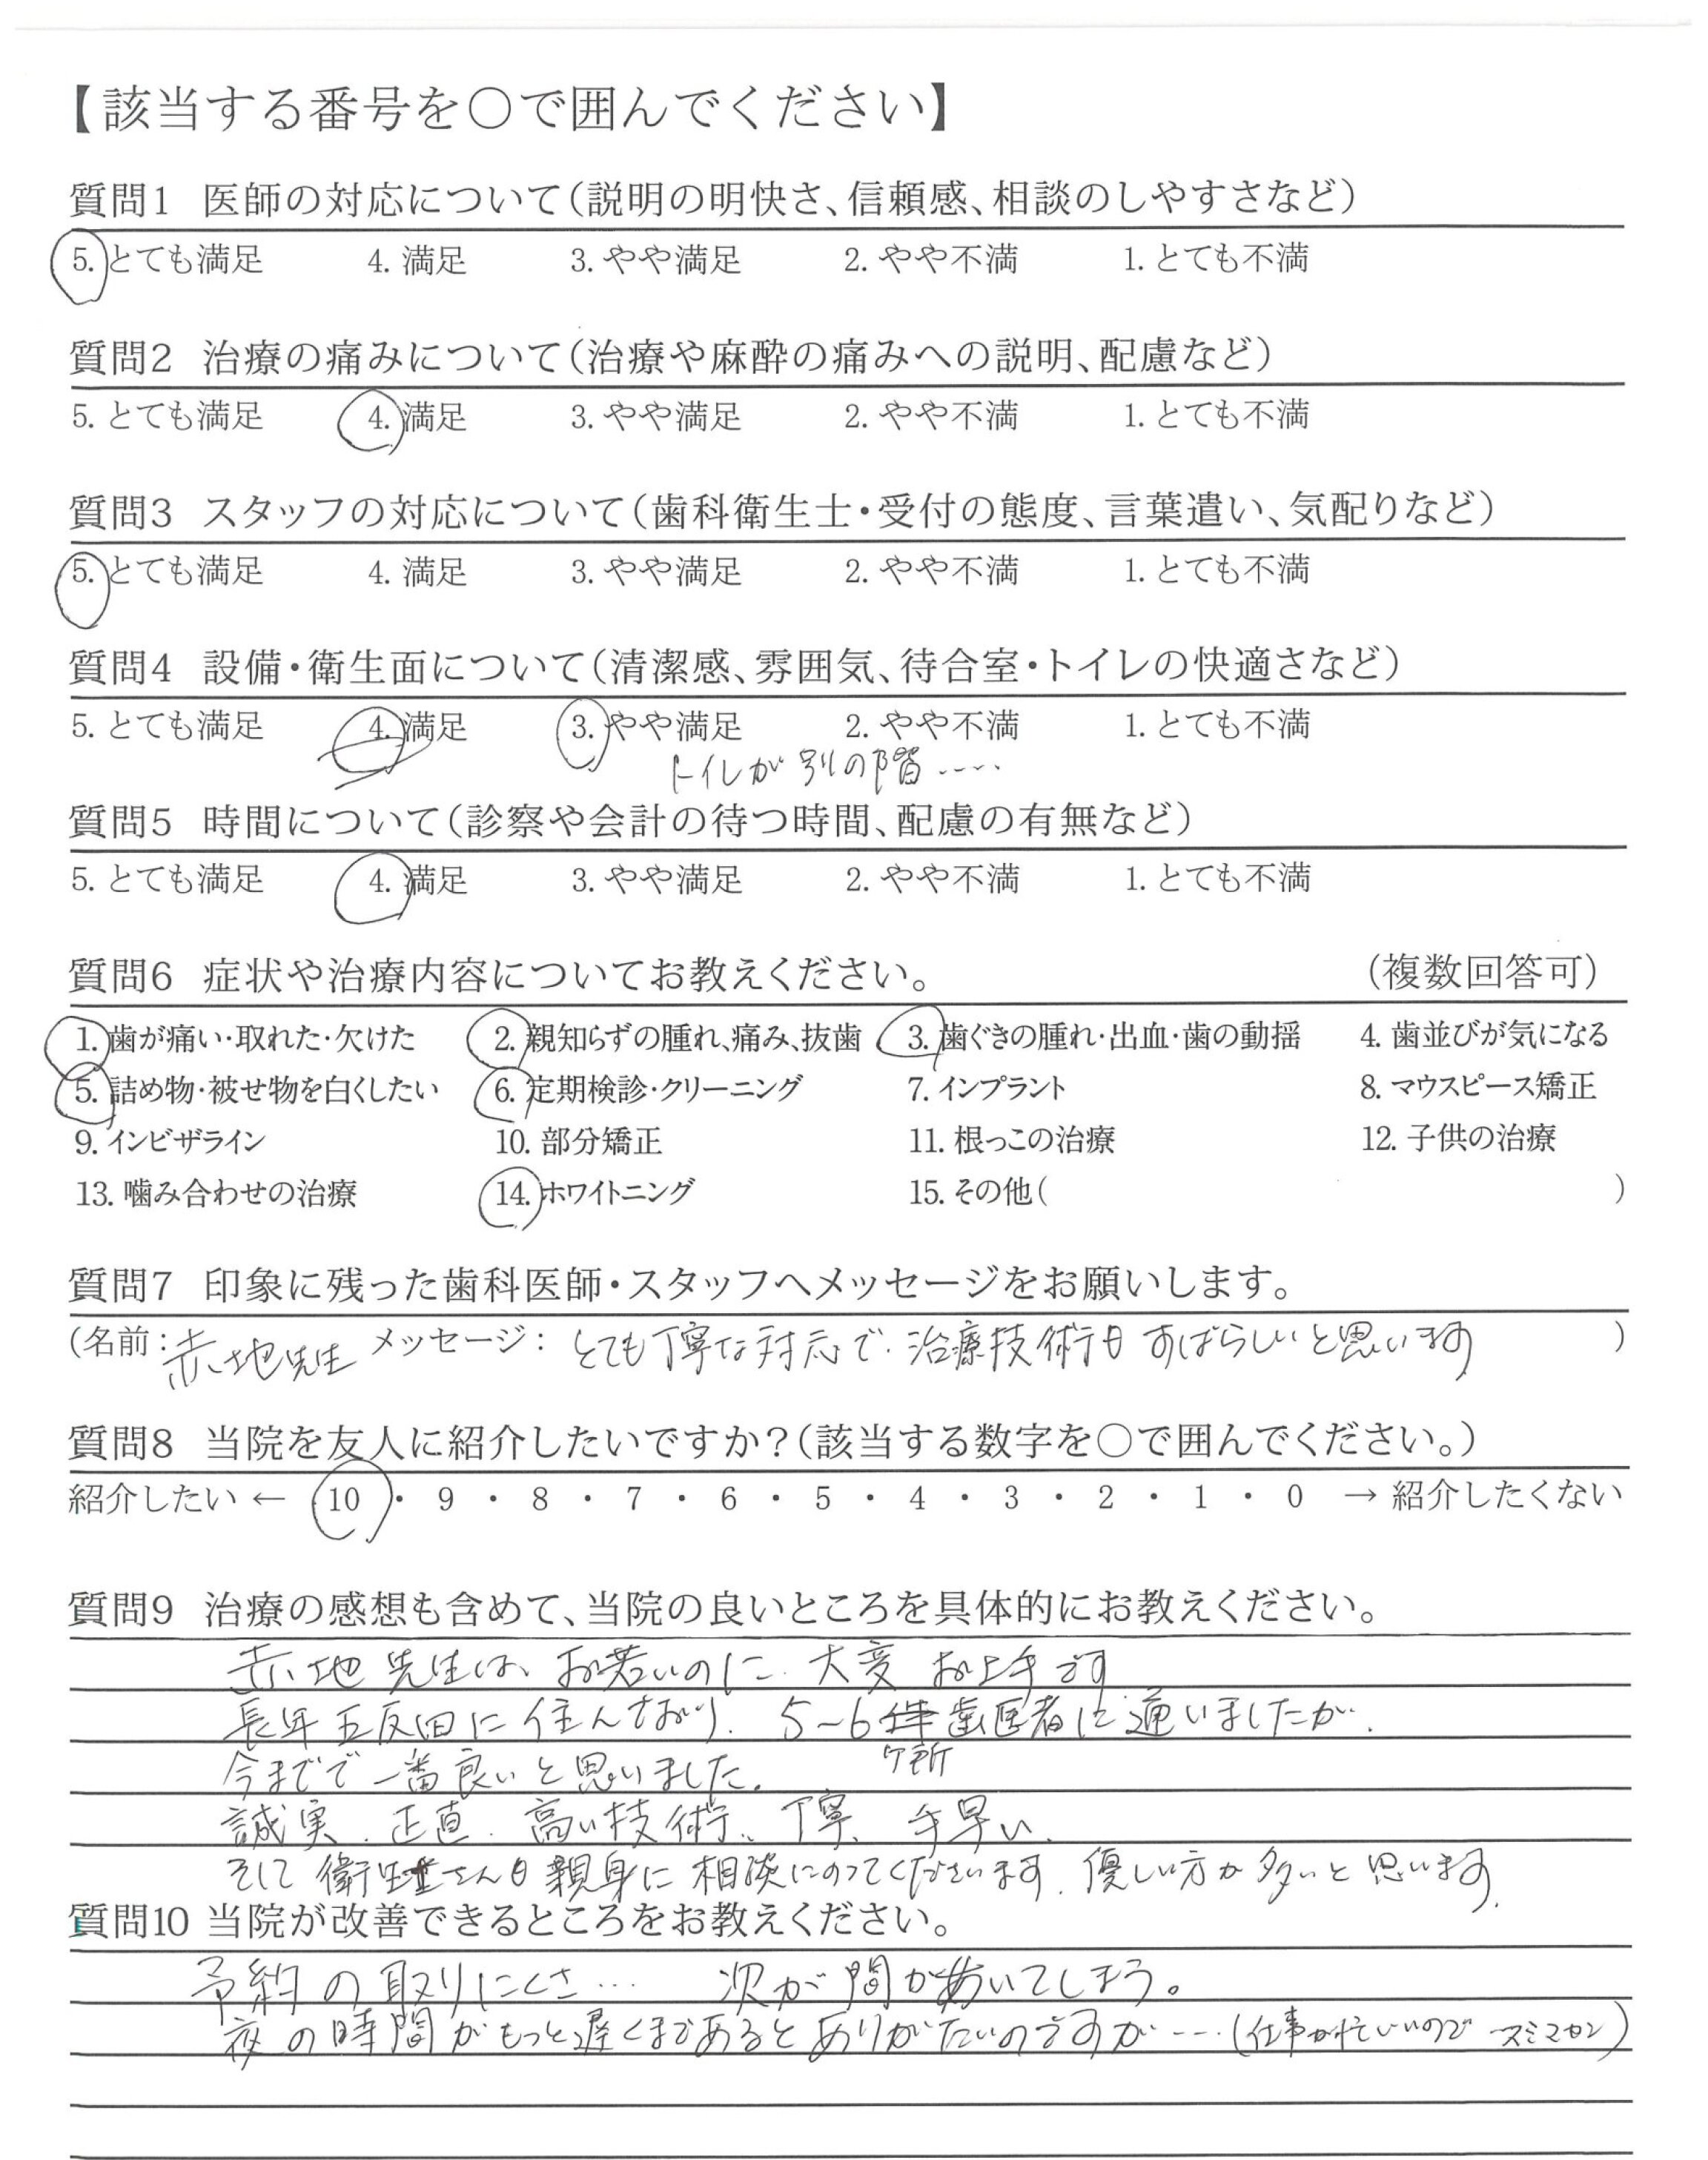 【該当する番号を○で囲んでください】
質問1 医師の対応について(説明の明快さ、信頼感、相談のしやすさなど)
5. とても満足 4. 満足 3. やや満足 2. やや不満 1. とても不満
質問2 治療の痛みについて(治療や麻酔の痛みへの説明、配慮など)
5. とても満足 4. 満足 3. やや満足 2. やや不満 1. とても不満
質問3 スタッフの対応について(歯科衛生士・受付の態度、言葉遣い、気配りなど)
5. とても満足 4. 満足 3. やや満足 2. やや不満 1. とても不満
質問4 設備・衛生面について(清潔感、雰囲気、待合室・トイレの快適さなど)
5. とても満足 4. 満足 3. やや満足 2. やや不満 1. とても不満
トイレが別の階……
質問5 時間について(診察や会計の待つ時間、配慮の有無など)
5. とても満足 4. 満足 3. やや満足 2. やや不満 1. とても不満
質問6 症状や治療内容についてお教えください。 (複数回答可)
1. 歯が痛い・取れた・欠けた 2. 親知らずの腫れ、痛み、抜歯 3. 歯ぐきの腫れ・出血・歯の動揺 4. 歯並びが気になる
5. 詰め物・被せ物を白くしたい 6. 定期検診・クリーニング 7. インプラント 8. マウスピース矯正
9. インビザライン 10. 部分矯正 11. 根っこの治療 12. 子供の治療
13. 噛み合わせの治療 14. ホワイトニング 15. その他( )
質問7 印象に残った歯科医師・スタッフへメッセージをお願いします。
(名前:赤地先生 メッセージ: とても丁寧な対応で、治療技術もすばらしいと思います )
質問8 当院を友人に紹介したいですか?(該当する数字を○で囲んでください。)
紹介したい ← 10 ・ 9 ・ 8 ・ 7 ・ 6 ・ 5 ・ 4 ・ 3 ・ 2 ・ 1 ・ 0 → 紹介したくない
質問9 治療の感想も含めて、当院の良いところを具体的にお教えください。
赤地先生は、お若いのに、大変お上手です
長年五反田に住んでおり、5~6件歯医者に通いましたが、
ケ所
今までで一番良いと思いました。
誠実、正直、高い技術、丁寧、手早い、
そして衛生士さんも親身に相談にのってくださいます。優しい方が多いと思います。
質問10 当院が改善できるところをお教えください。
予約の取りにくさ… 次が間があいてしまう。
夜の時間がもっと遅くまであるとありがたいのですが…(仕事がいそがしいので スミマセン)